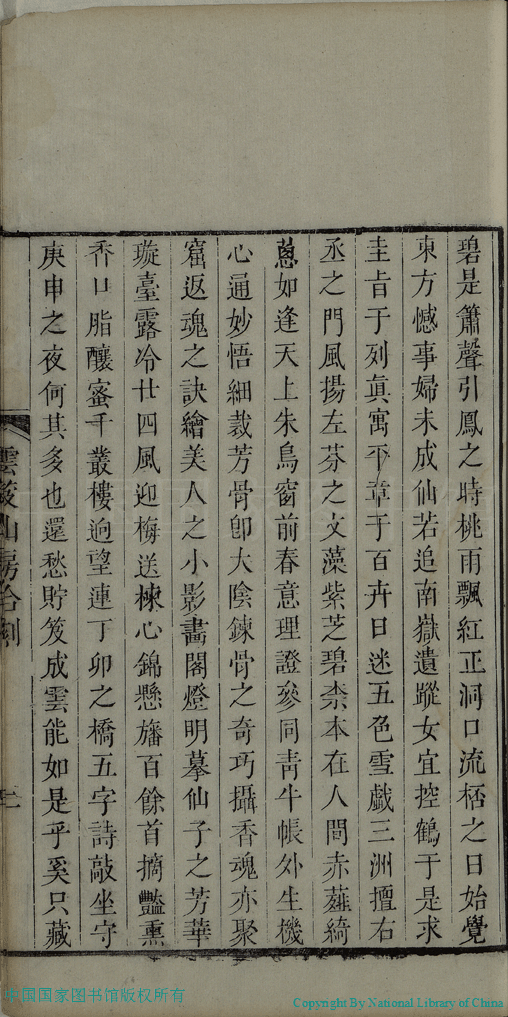 碧是簫聲引鳳之時桃雨飄紅正洞口流栝之日始覺
東方憾事婦未成仙若追南嶽遺蹤女宜控鶴于是求
圭旨于列真寓平章于百卉日迷五色雪戲三洲擅右
丞之門風揚左芬之文藻紫芝碧柰本在人間赤薤綺
蔥如逢天上朱鳥窗前春意理證參同靑牛帳外生機
心通妙悟細裁芳骨卽大陰鍊骨之奇巧攝香魂亦聚
窟返魂之訣繪美人之小影畵閣燈明摹仙子之芳華
璇臺露冷廿四風迎梅送楝心錦懸旛百餘首摘豔熏
香口脂釀蜜千叢樓逈望連丁卯之橋五字詩敲坐守
庚申之夜何其多也還愁貯笈成雲能如是乎奚只藏
山房合刻
中国国家图书馆版权所有
Copyright By National Library of China